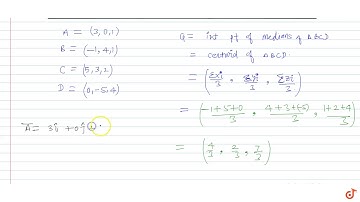 A = (3, 0, 1)
B = (-1, 4, 1)
C = (5, 3, 2)
D = (0, -5, 4)
A = 3i + 0j
G = int pt of medians of ΔBCD
= centroid of ΔBCD
= (Σxi/3, Σyi/3, Σzi/3)
= (-1+5+0/3, 4+3+(-5)/3, 1+2+4/3)
= (4/3, 2/3, 7/3)